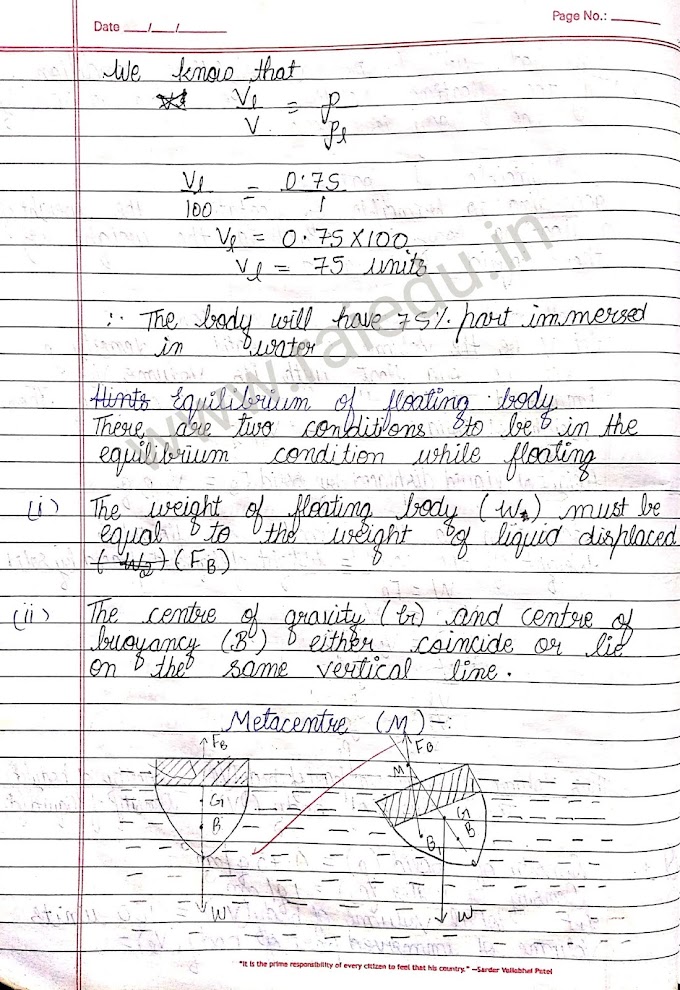 Date ___/___/______
Page No.: ______
We know that
Vl/V = ρ/ρl
Vl/100 = 0.75/1
Vl = 0.75×100
Vl = 75 units
∴ The body will have 75% part immersed
in water
Hints Equilibrium of floating body
There are two conditions to be in the
equilibrium condition while floating
(i) The weight of floating body (W) must be
equal to the weight of liquid displaced
(W2) (FB)
(ii) The centre of gravity (G) and centre of
buoyancy (B) either coincide or lie
on the same vertical line.
Metacentre (M) -:
FB
G
B
W
FB
M
G
B
B1
W
www.raiedu.in
"It is the prime responsibility of every citizen to feel that his country." —Sardar Vallabhbhai Patel